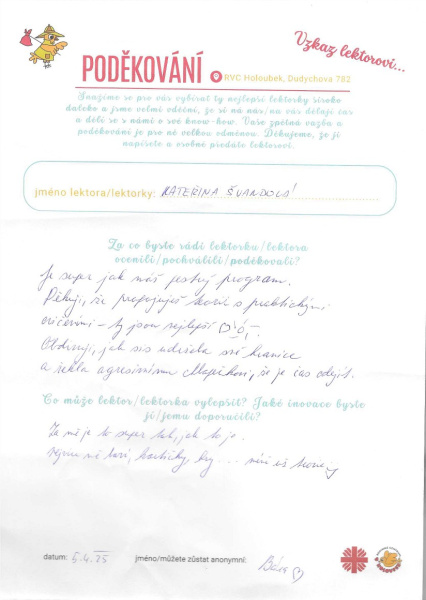 Vzkaz lektorovi...
PODĚKOVÁNÍ
RVC Holoubek, Dudychova 782
Snažíme se pro vás vybírat ty nejlepší lektorky široko
daleko a jsme velmi vděční, že si na nás/na vás dělají čas
a dělí se s námi o své know-how. Vaše zpětná vazba a
poděkování je pro ně velkou odměnou. Děkujeme, že ji
napíšete a osobně předáte lektorovi.
jméno lektora/lektorky: KATEŘINA ŠVANDOVÁ
Za co byste rádi lektorku/lektora
ocenili/pochválili/poděkovali?
Je super jak máš pestrý program.
Děkuji, že propojuješ s praktickými
cvičeními - ty jsou nejlepší
Obdivuji, jak sis udržela své hranice
a řekla agresivnímu, že je čas odejít.
Co může lektor/lektorka vylepšit? Jaké inovace byste
jí/jemu doporučili?
Za mě je to super tak, jak to je.
kartičky, hry...
datum: 5.4.25 jméno/můžete zůstat anonymní: Bára